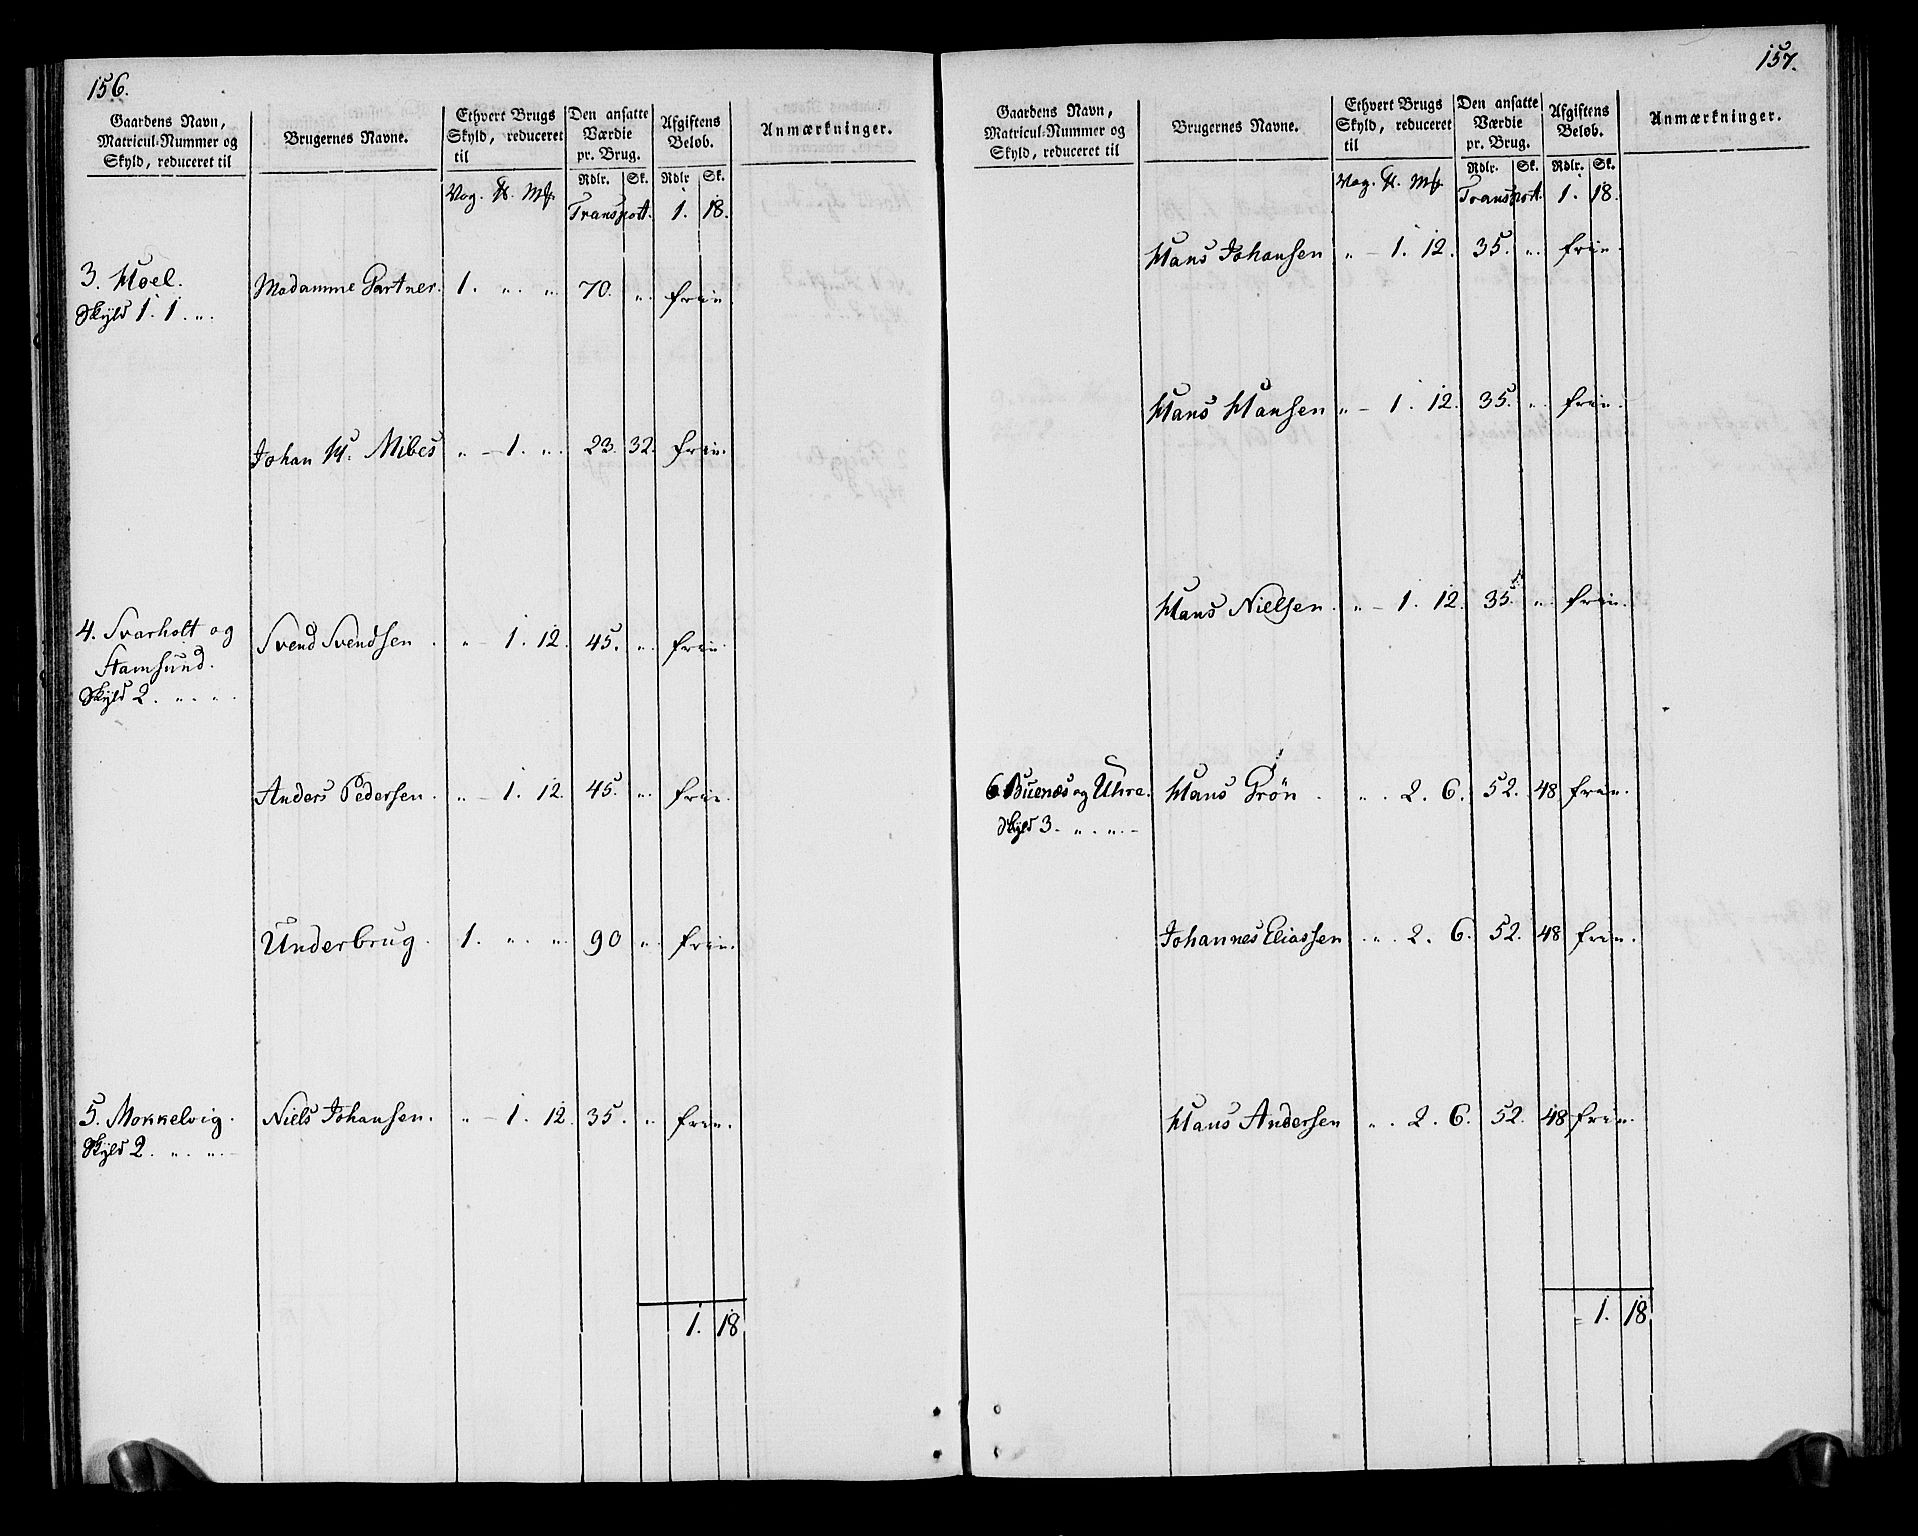 156.
Gaardens Navn, Matricul-Nummer og Skyld, reduceret til | Brugernes Navne. | Ethvert Brugs Skyld, reduceret til | Den ansatte Værdie pr. Brug. | Afgiftens Beløb. | Anmærkninger.
Rdlr. Sk. Rdlr Sk.
Vog. ℔. Mk. Transport. 1. 18.
3. Hoel. Madamme Partner. 1. „ „ 70. „ frie.
Skyld 1. 1. „.
Johan H. Mibes „ – 1. „. 23. 32. frie.
4. Svarholt og Svend Svendsen. „ – 1. 12. 45. „. frie.
Stamsund.
Skyld 2. „. „.
Anders Pedersen. „ – 1. 12. 45. „. frie.
Underbrug. 1. „ „. 90 „. frie.
5. Mokkelvig. Niels Johansen. „ – 1. 12. 35. „. frie.
Skyld 2. „. „. –
1. 18
157.
Gaardens Navn, Matricul-Nummer og Skyld, reduceret til | Brugernes Navne. | Ethvert Brugs Skyld, reduceret til | Den ansatte Værdie pr. Brug. | Afgiftens Beløb. | Anmærkninger.
Rdlr. Sk. Rdlr. Sk.
Vog. ℔. Mk. Transport. 1. 18.
Hans Johansen „ – 1. 12. 35. „. frie.
Hans Hansen „ – 1. 12. 35. „. frie.
Hans Nielsen. „ – 1. 12. 35. „. frie.
6 Buenæs og Uhre. Hans Grön. „. 2. 6. 52. 48 frie.
Skyld 3. „. „. –
Johannes Eliassen. „. 2. 6. 52. 48 frie.
Hans Andersen „. 2. 6. 52. 48 frie.
= 1. 18